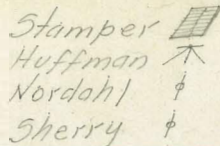 Stamper
Huffman
Nordahl
Sherry